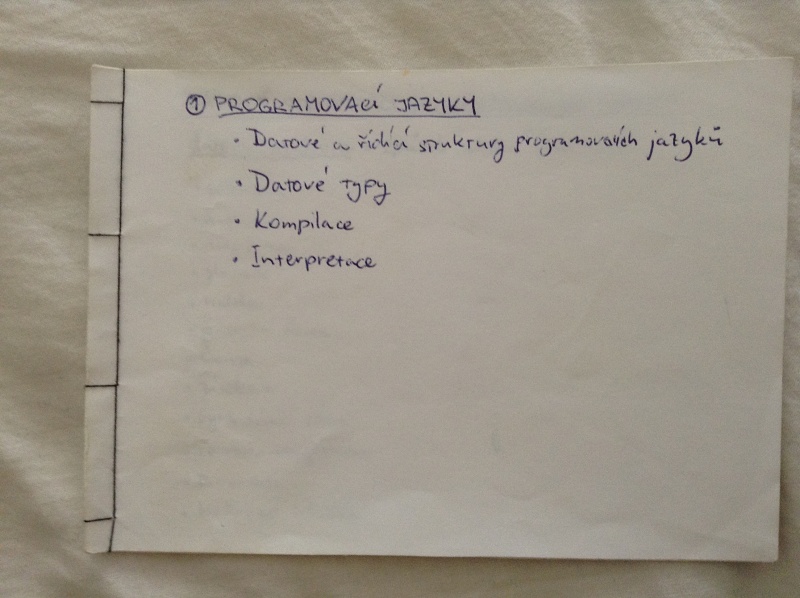 ① PROGRAMOVACÍ JAZYKY
• Datové a řídící struktury programovacích jazyků
• Datové typy
• Kompilace
• Interpretace